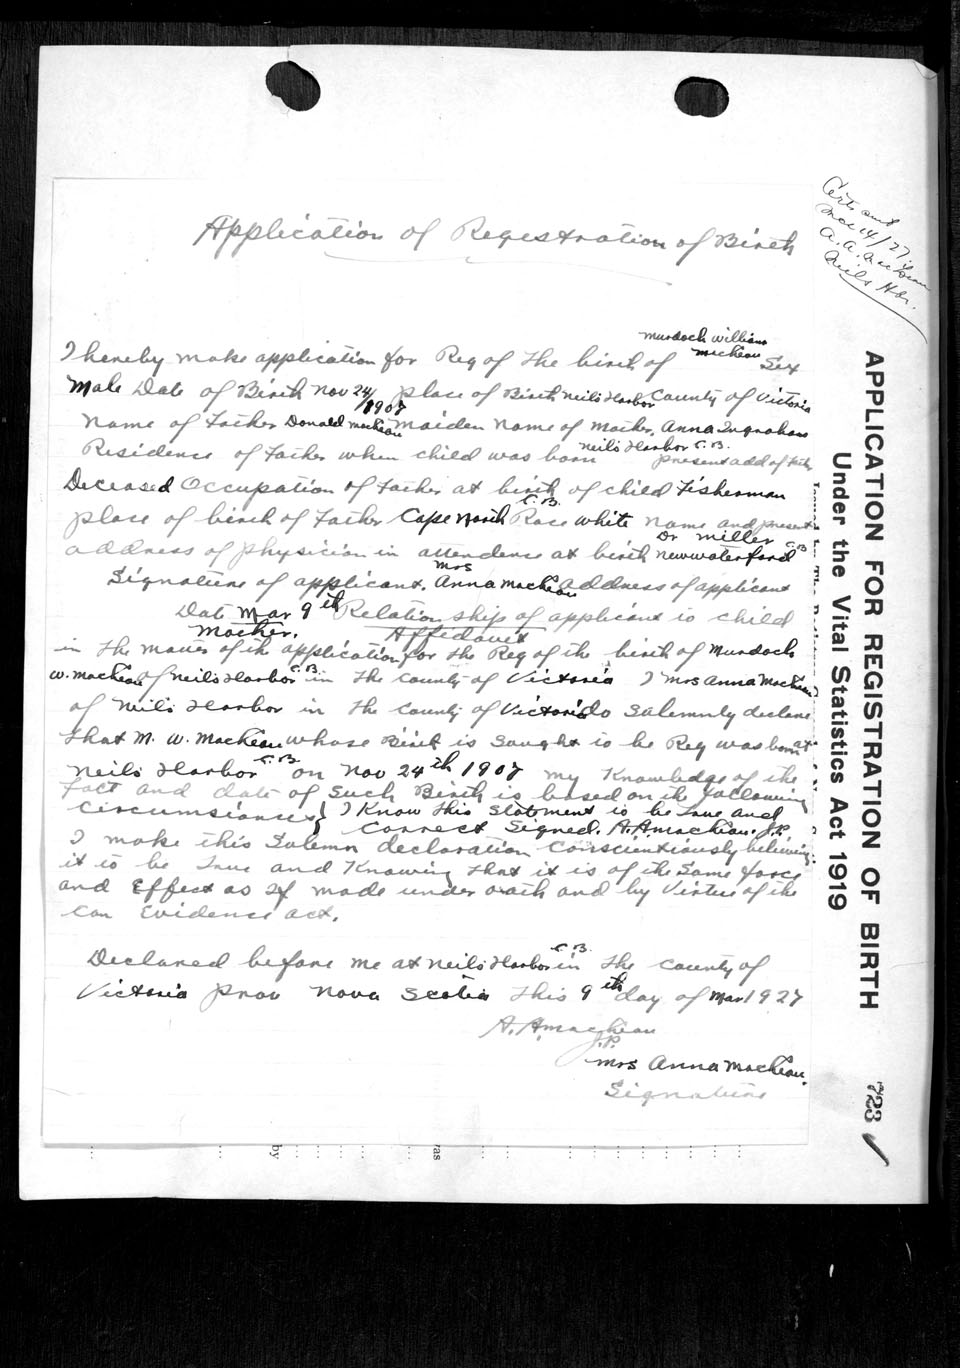 Application of Registration of Birth
I hereby make application for Reg of the birth of Murdoch William McKeau Sex
Male Date of Birth Nov 24/1907 place of Birth Neil's Harbor County of Victoria
Name of Father Donald McKeau Maiden Name of Mother. Anna Ingraham
Residence of Father when child was born Neil's Harbor C.B. present add of Father
Deceased Occupation of Father at birth of child Fisherman
place of birth of Father Cape North C.B. Race White Name and present
address of physician in attendence at birth Dr Miller New Waterford C.B.
Signature of applicant. Mrs Anna MacKeau address of applicant
Date Mar 9th Relation ship of applicant to child
Mother. Affidavit
in the matter of the application for the Reg of the birth of Murdoch
W. MacKeau of Neil's Harbor C.B. in the County of Victoria I Mrs Anna MacKeau
of Neil's Harbor in the County of Victoria do Solemnly declare
that M. W. MacKeau whose Birth is sought to be Reg was born at
Neil's Harbor C.B. on Nov 24th 1907 my Knowledge of the
Fact and date of Such Birth is based on the following
Circumstances } I Know this Statement to be True and
Correct Signed. A. A. MacKeau. J.P.
I make this Solemn declaration Conscientiously believing
it to be True and Knowing that it is of the Same force
and Effect as if made under oath and by Virtue of the
Can Evidence act.
Declared before me at Neil's Harbor C.B. in the County of
Victoria prov Nova Scotia this 9th day of Mar 1927
A. A. MacKeau
J.P.
Mrs Anna MacKeau.
Signature
by
was
Mar 14/27
A. A.
Neil's Hbr.
APPLICATION FOR REGISTRATION OF BIRTH 723
Under the Vital Statistics Act 1919